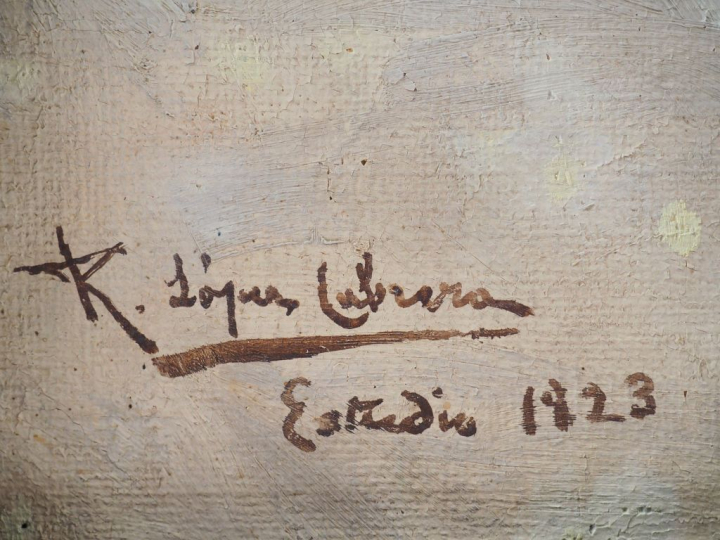 R. López Cabrera
Estudio 1923